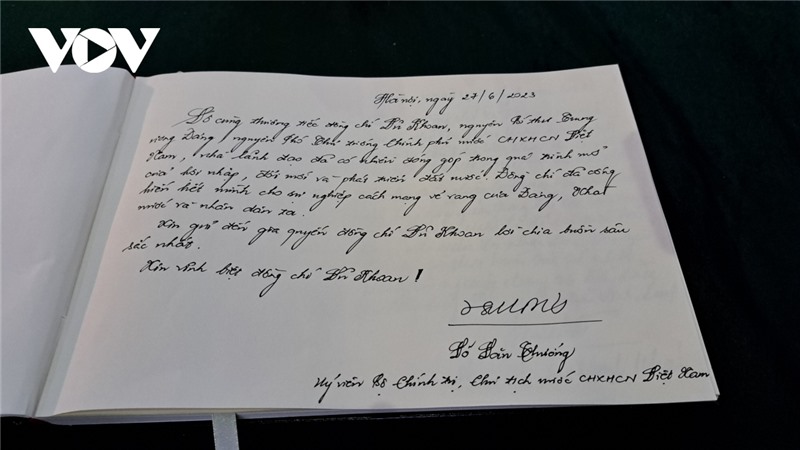 VOV
Hà Nội, ngày 27/6/2023
Vô cùng thương tiếc đồng chí Vũ Khoan, nguyên Bí thư Trung
ương Đảng, nguyên Phó Thủ tướng Chính phủ nước CHXHCN Việt
Nam, nhà lãnh đạo đã có nhiều đóng góp trong quá trình mở
cửa hội nhập, đổi mới và phát triển đất nước. Đồng chí đã cống
hiến hết mình cho sự nghiệp cách mạng vẻ vang của Đảng, Nhà
nước và nhân dân ta.
Xin gửi đến gia quyến đồng chí Vũ Khoan lời chia buồn sâu
sắc nhất.
Xin vĩnh biệt đồng chí Vũ Khoan!
Võ Văn Thưởng
Uỷ viên Bộ Chính trị, Chủ tịch nước CHXHCN Việt Nam